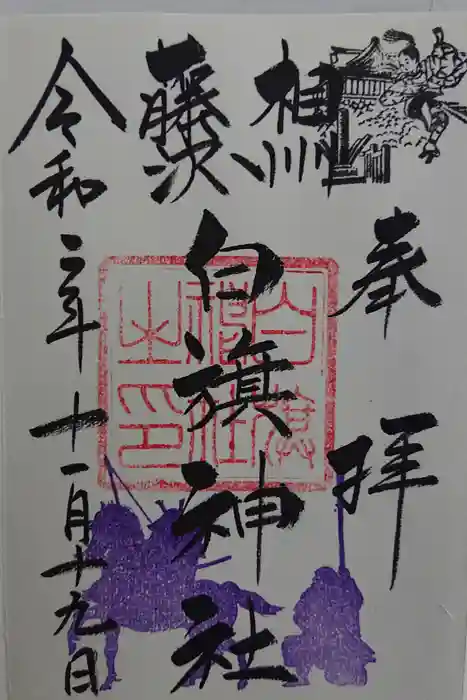 奉拝
相州
藤沢
白旗神社
白旗神社之印
令和二年十一月十九日